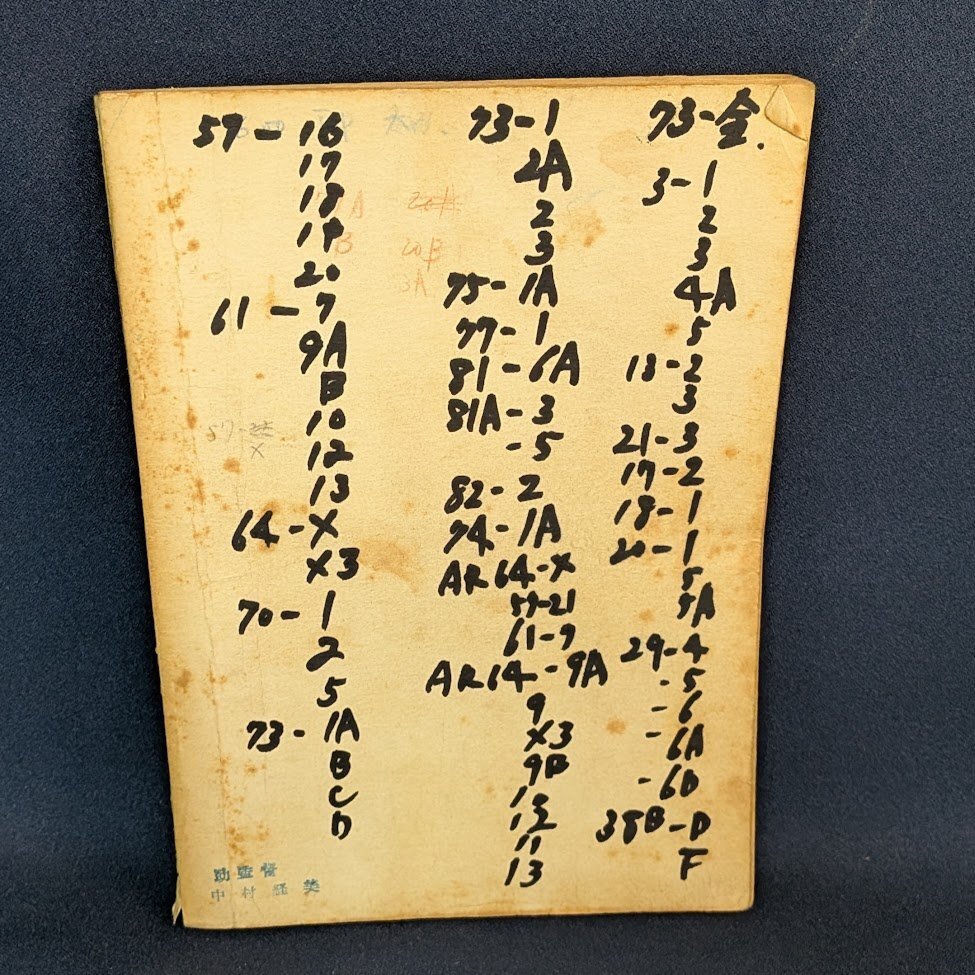 57-16
17
18
19
20
61-7
9A
B
10
12
13
64-X
X3
70-1
2
5
73-1A
B
C
D
助監督
中村経美
73-1
2A
2
3
75-1A
77-1
81-6A
81A-3
-5
82-2
74-1A
AR64-X
57-21
61-9
AR64-9A
9
X3
9B
12
11
13
73-全.
3-1
2
3
4A
5
13-2
3
21-3
17-2
18-1
20-1
5
5A
29-4
-5
-6
-6A
-6D
38B-D
F
A
B
20B
3A